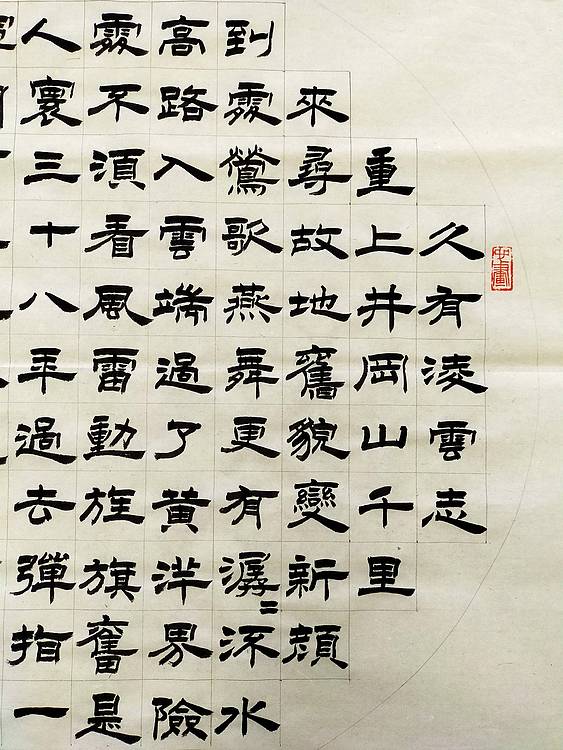 久有凌雲志
重上井岡山千里
來尋故地舊貌變新顔
到處鶯歌燕舞更有潺〻流水
高路入雲端過了黄洋界險
處不須看風雷動旌旗奮是
人寰三十八年過去彈指一